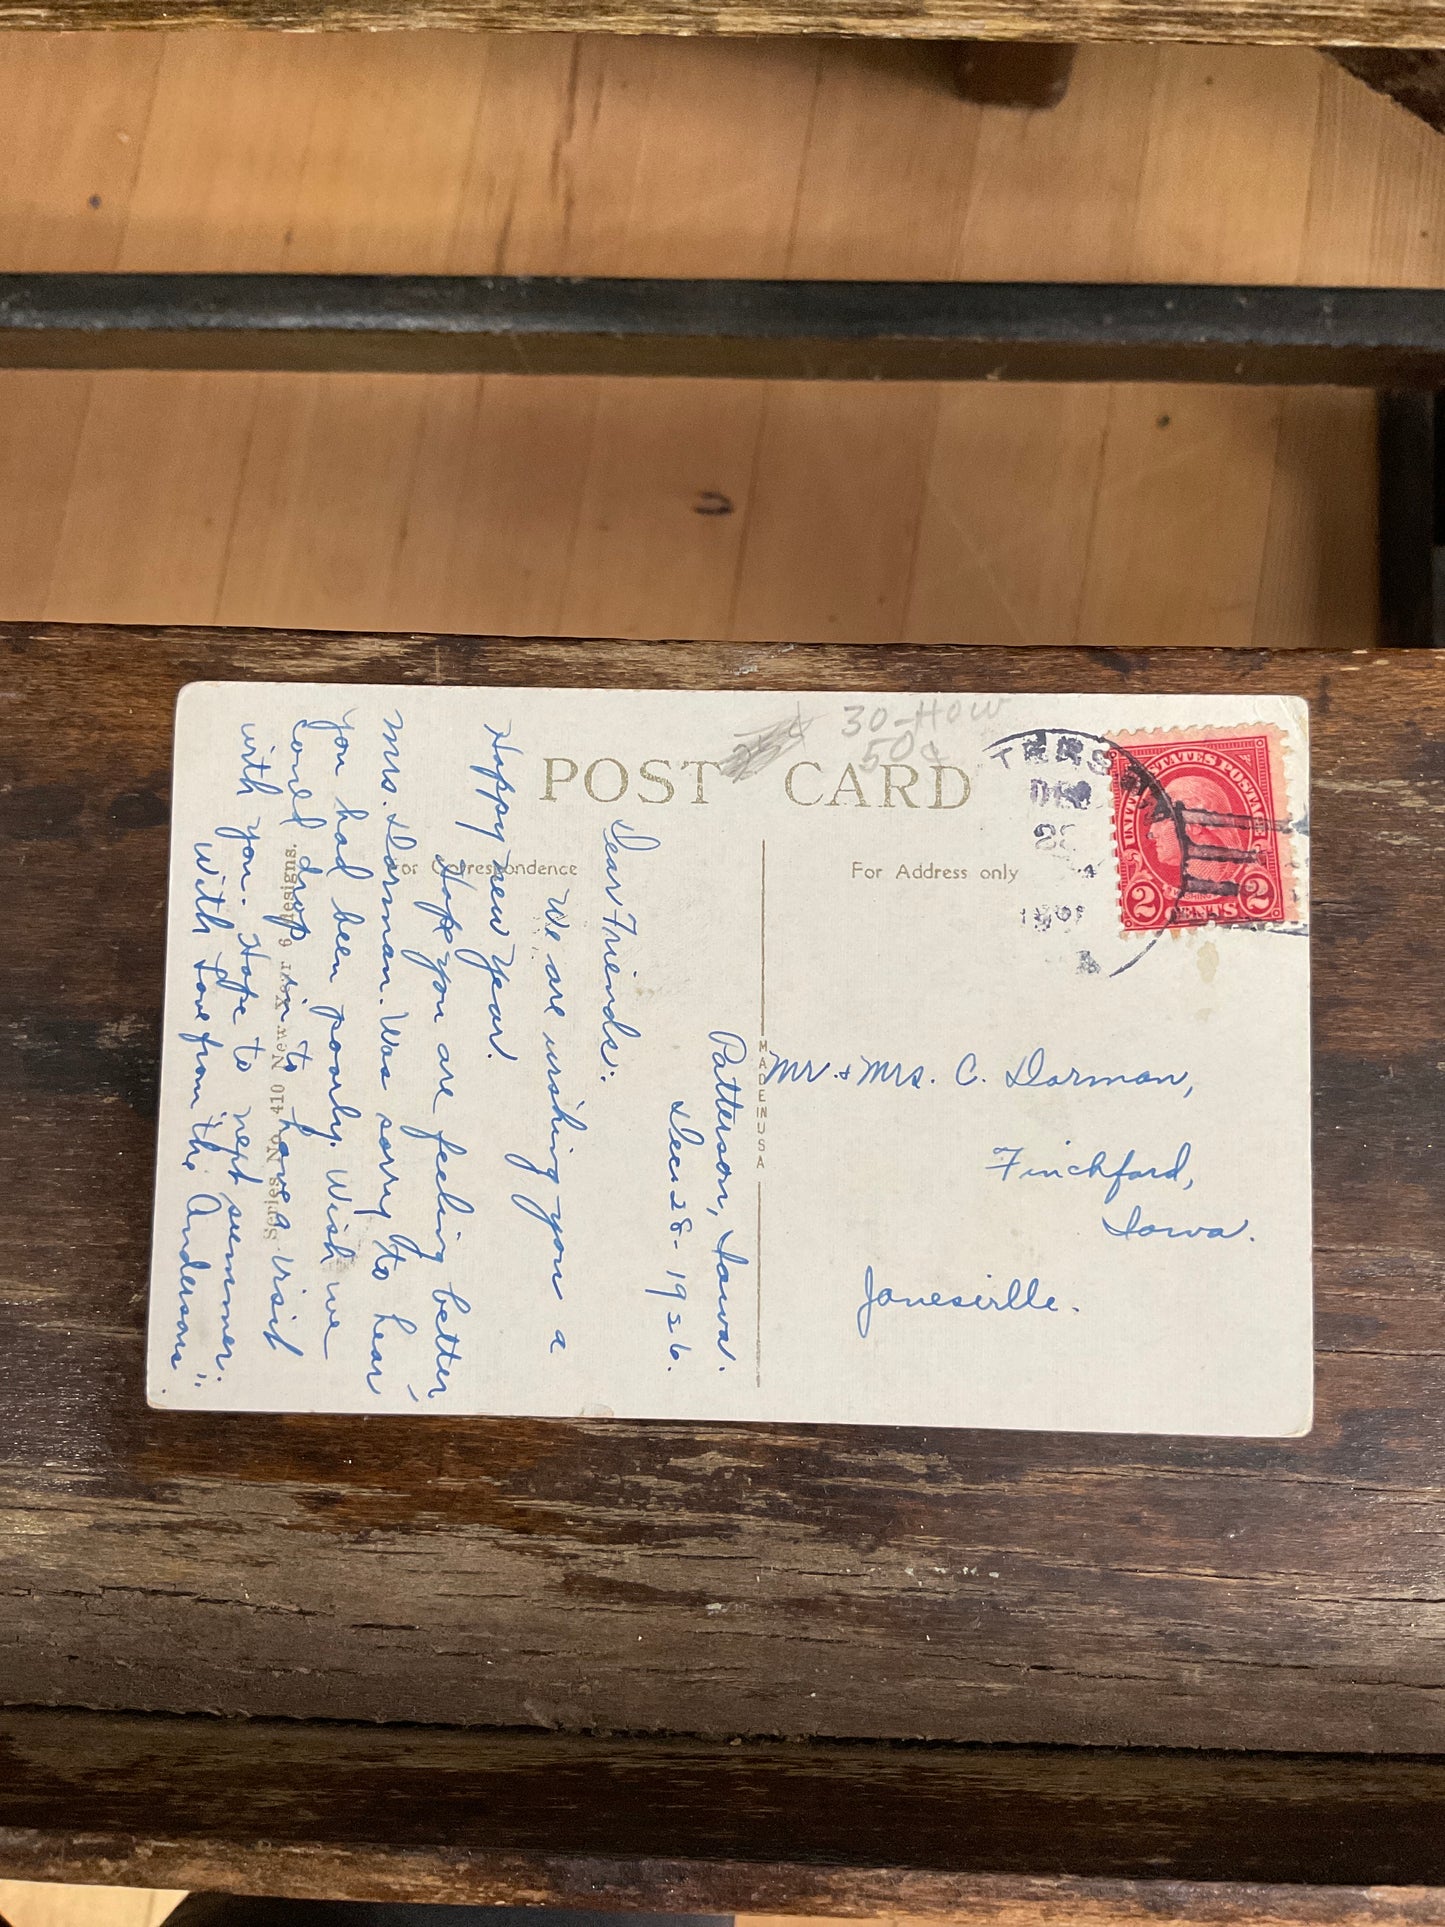 25¢ 30-HOW
50¢
POST CARD
For Correspondence
For Address only
MADE IN USA
Series No. 410 New Year 6 designs.
TERSON
DEC
UNITED STATES POSTAGE
2 CENTS 2
Patterson, Iowa.
Dec. 28-1926.
Dear Friends:
We are wishing you a
Happy New Year.
Hope you are feeling better
Mrs. Dorman. Was sorry to hear
you had been poorly. Wish we
could drop in to have a visit
with you. Hope to next summer.
With Love from "the Andersons".
Mr. & Mrs. C. Dorman,
Finchford,
Iowa.
Janesville.